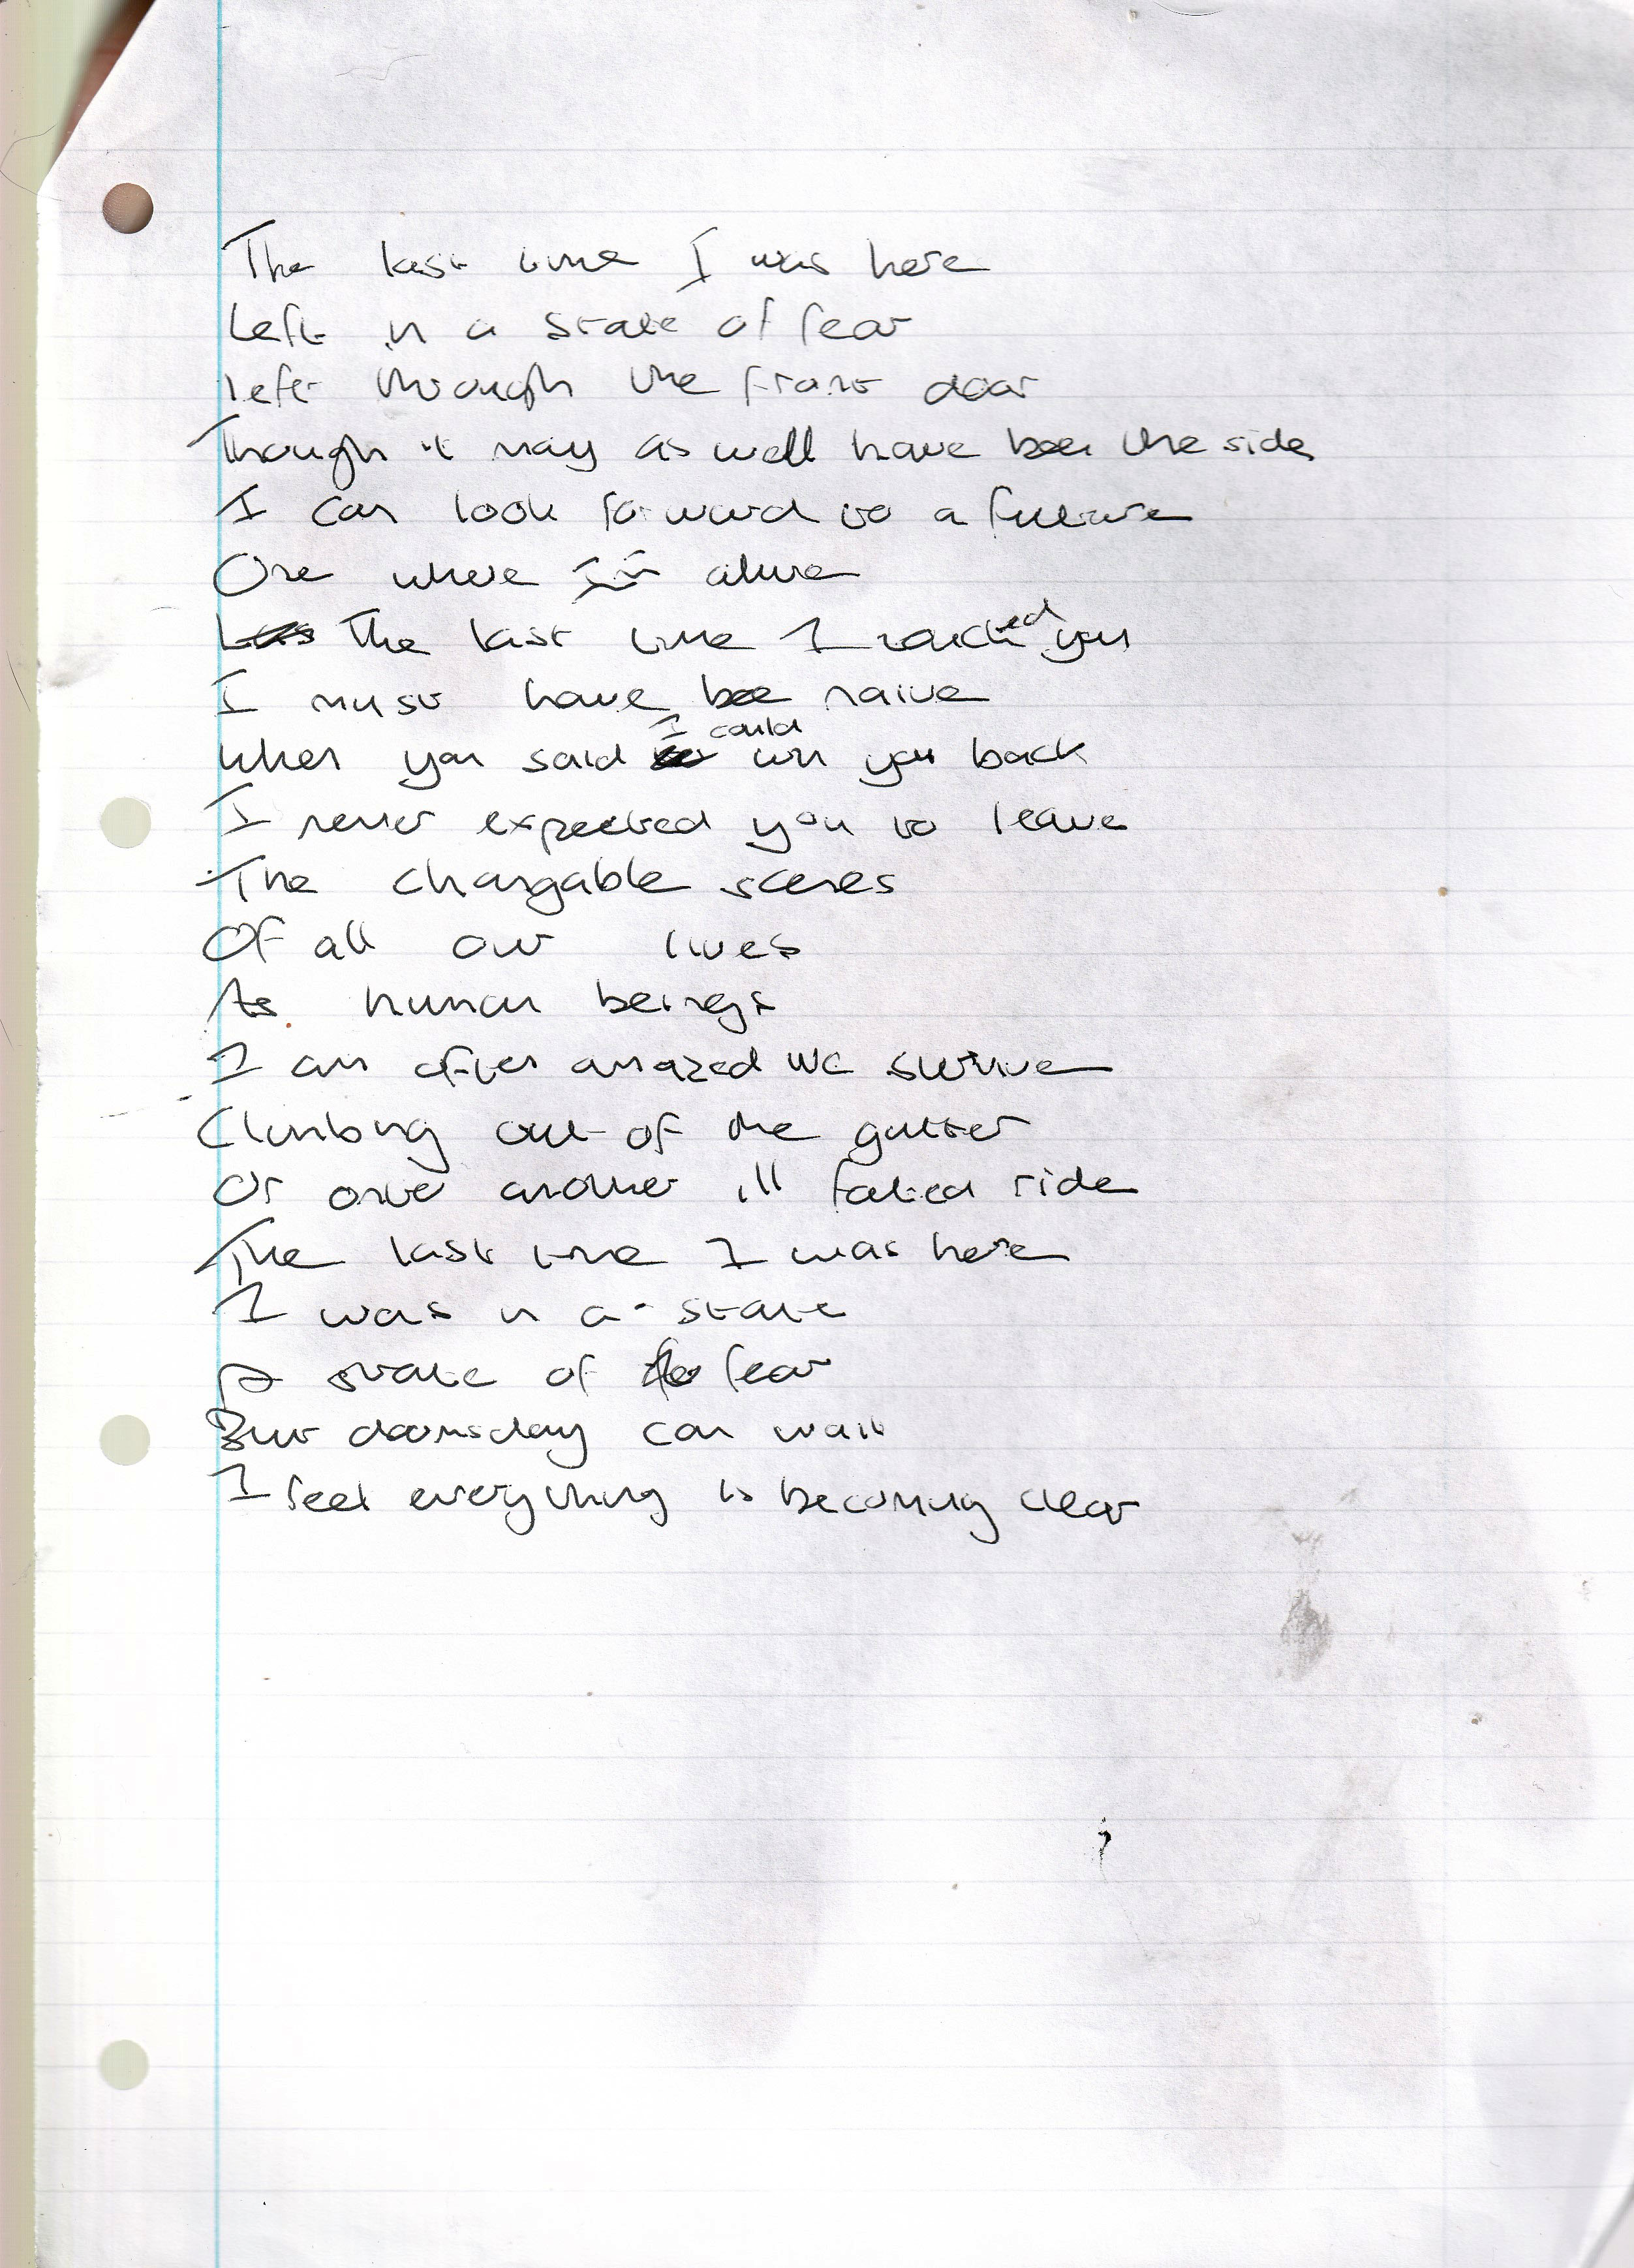 The last time I was here
Left in a state of fear
Left through the front door
Though it may as well have been the side
I can look forward to a future
One where I'm alive
The last time I reached you
I must have been naive
When you said I could win you back
I never expected you to leave
The changable scenes
Of all our lives
As human beings
I am often amazed we survive
Climbing out of the gutter
Or onto another ill fated ride
The last time I was here
I was in a state
A state of fear
But doomsday can wait
I feel everything is becoming clear